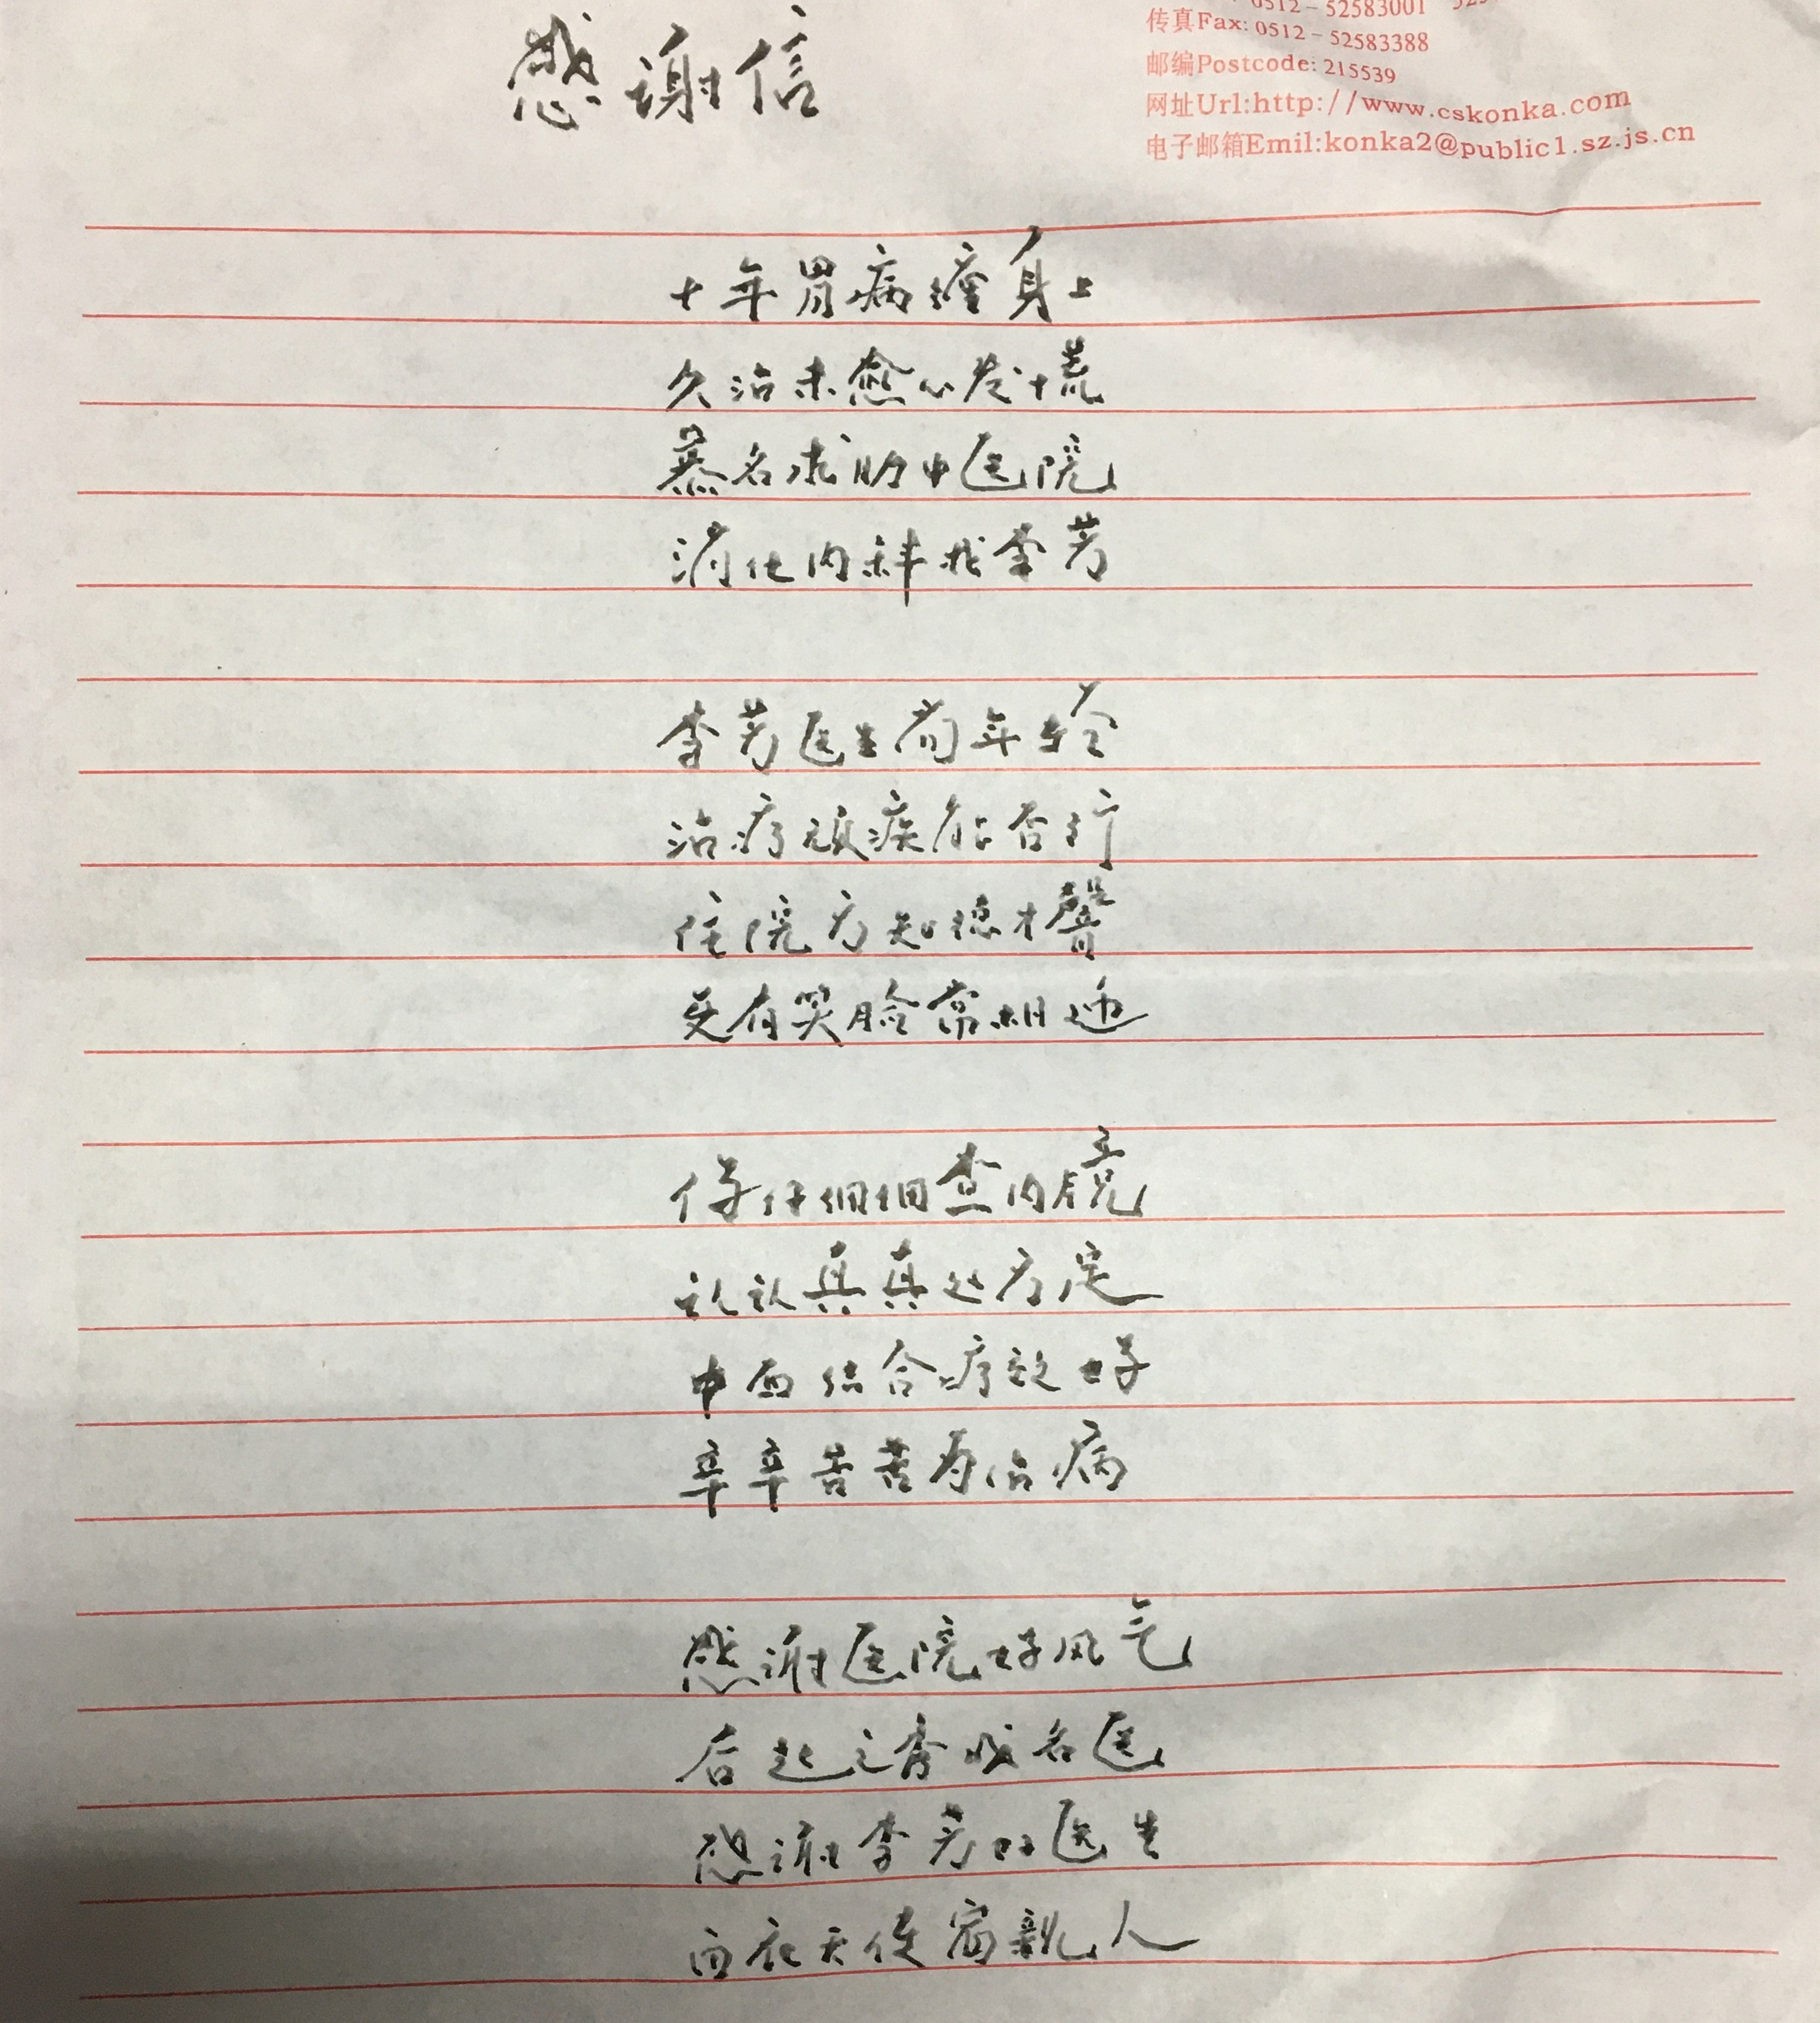 感谢信
0512-52583001
传真Fax: 0512-52583388
邮编Postcode: 215539
网址Url:http://www.cskonka.com
电子邮箱Emil:konka2@public1.sz.js.cn
十年胃病缠身上
久治未愈心发慌
慕名求助中医院
消化内科找李芳
李芳医生尚年轻
治疗顽疾能否行
住院方知德才馨
更有笑脸常相迎
仔仔细细查内镜
认认真真处方定
中西结合疗效好
辛辛苦苦为治病
感谢医院好风气
后起之秀成名医
感谢李芳好医生
白衣天使 亲人